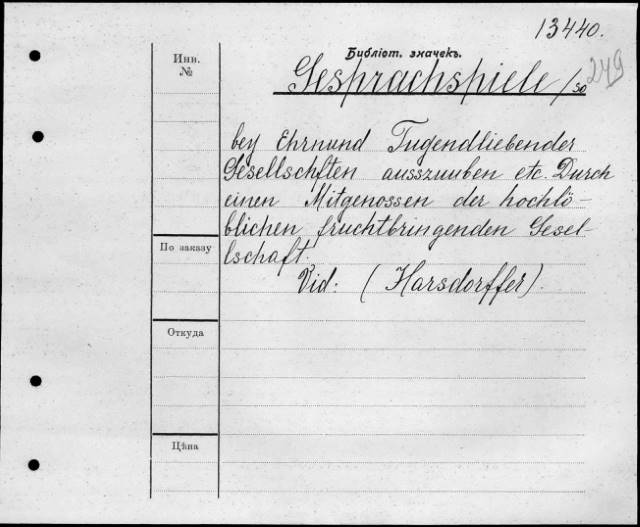 13440.
Инв. №
Библіот. значекъ.
249
Gesprachspiele /so
bey Ehrnund Tugendliebender
Gesellschften auszuuben etc. Durch
einen Mitgenossen der hochlö-
blichen fruchtbringenden Gesel-
lschaft.
По заказу
Vid. (Harsdorffer).
Откуда
Цѣна